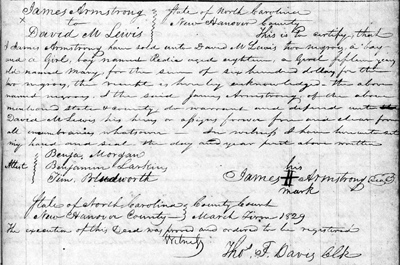 James Armstrong State of North Carolina
to New Hanover County
David M Lewis This is to certify, that
I James Armstrong have sold unto David M Lewis two negroes, a boy
and a Girl, boy named Redic aged eighteen, a Girl fifteen years
old named Mary for the sum of six hundred dollars, for the
two negroes, the receipt is hereby acknowledged. the above
named I the said James Armstrong of the above
mentioned state & county do warrant and defend to
David M Lewis his heirs or assigns forever from and clear from
all incumbrances whatsoever In witness I have hereunto set
my hand and seal the day and year first above written
Benja. Morgan
Attest Benjamin Larkins his
Tim. Bludworth James H Armstrong Seal
mark
State of North Carolina County Court
New Hanover County March Term 1829
The execution of this Deed was proved and ordered to be registered
Witness
Thos. F. Davis Clk